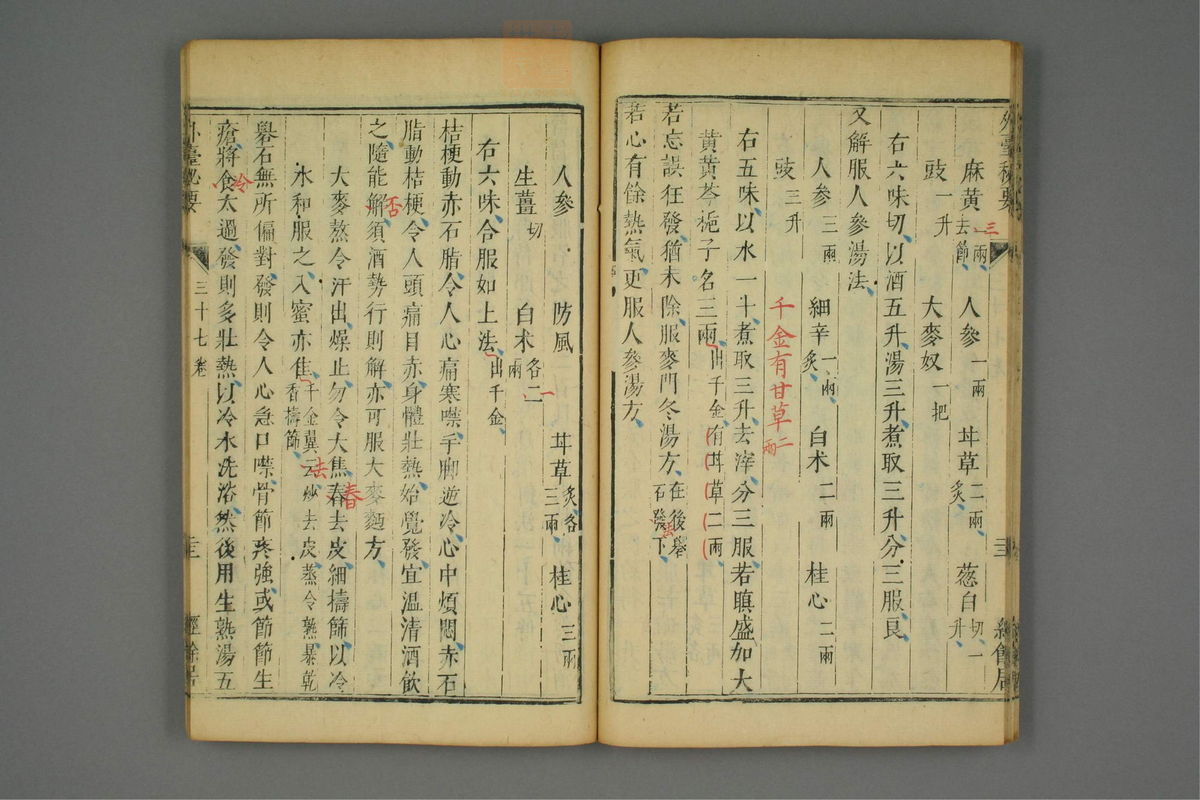 外臺秘要
麻黄去節三兩 人參一兩 甘草二兩炙 葱白切一升
豉一升 大麥奴一把
右六味切以酒五升湯三升煮取三升分三服良
又解服人參湯法
人參三兩 細辛一兩炙 白术二兩 桂心二兩
豉三升
千金有甘草二兩
右五味以水一十煮取三升去滓分三服若瞋盛加大
黄黄芩梔子名三兩出千金有甘草二兩
若忘誤狂發猶未除服麥門冬湯方在後礜石發下
法
若心有餘熱氣更服人參湯方
人參 防風 甘草炙各三兩 桂心三兩
生薑切 白术各二兩
一
右六味合服如上法出千金
桔梗動赤石脂令人心痛寒噤手脚逆冷心中煩悶赤石
脂動桔梗令人頭痛目赤身體壯熱始覺發宜温清酒飲
之隨能解須酒勢行則解亦可服大麥麵方
否
大麥熬令汗出燥止勿令大焦舂去皮細擣篩以冷
春
水和服之入蜜亦佳千金翼云炒去皮蒸令熟暴乾香擣篩
法
礜石無所偏對發則令人心急口噤骨節疼強或節節生
瘡將食太過發則多壯熱以冷水洗浴然後用生熟湯五
冷
外臺秘要
三十七卷
經餘居